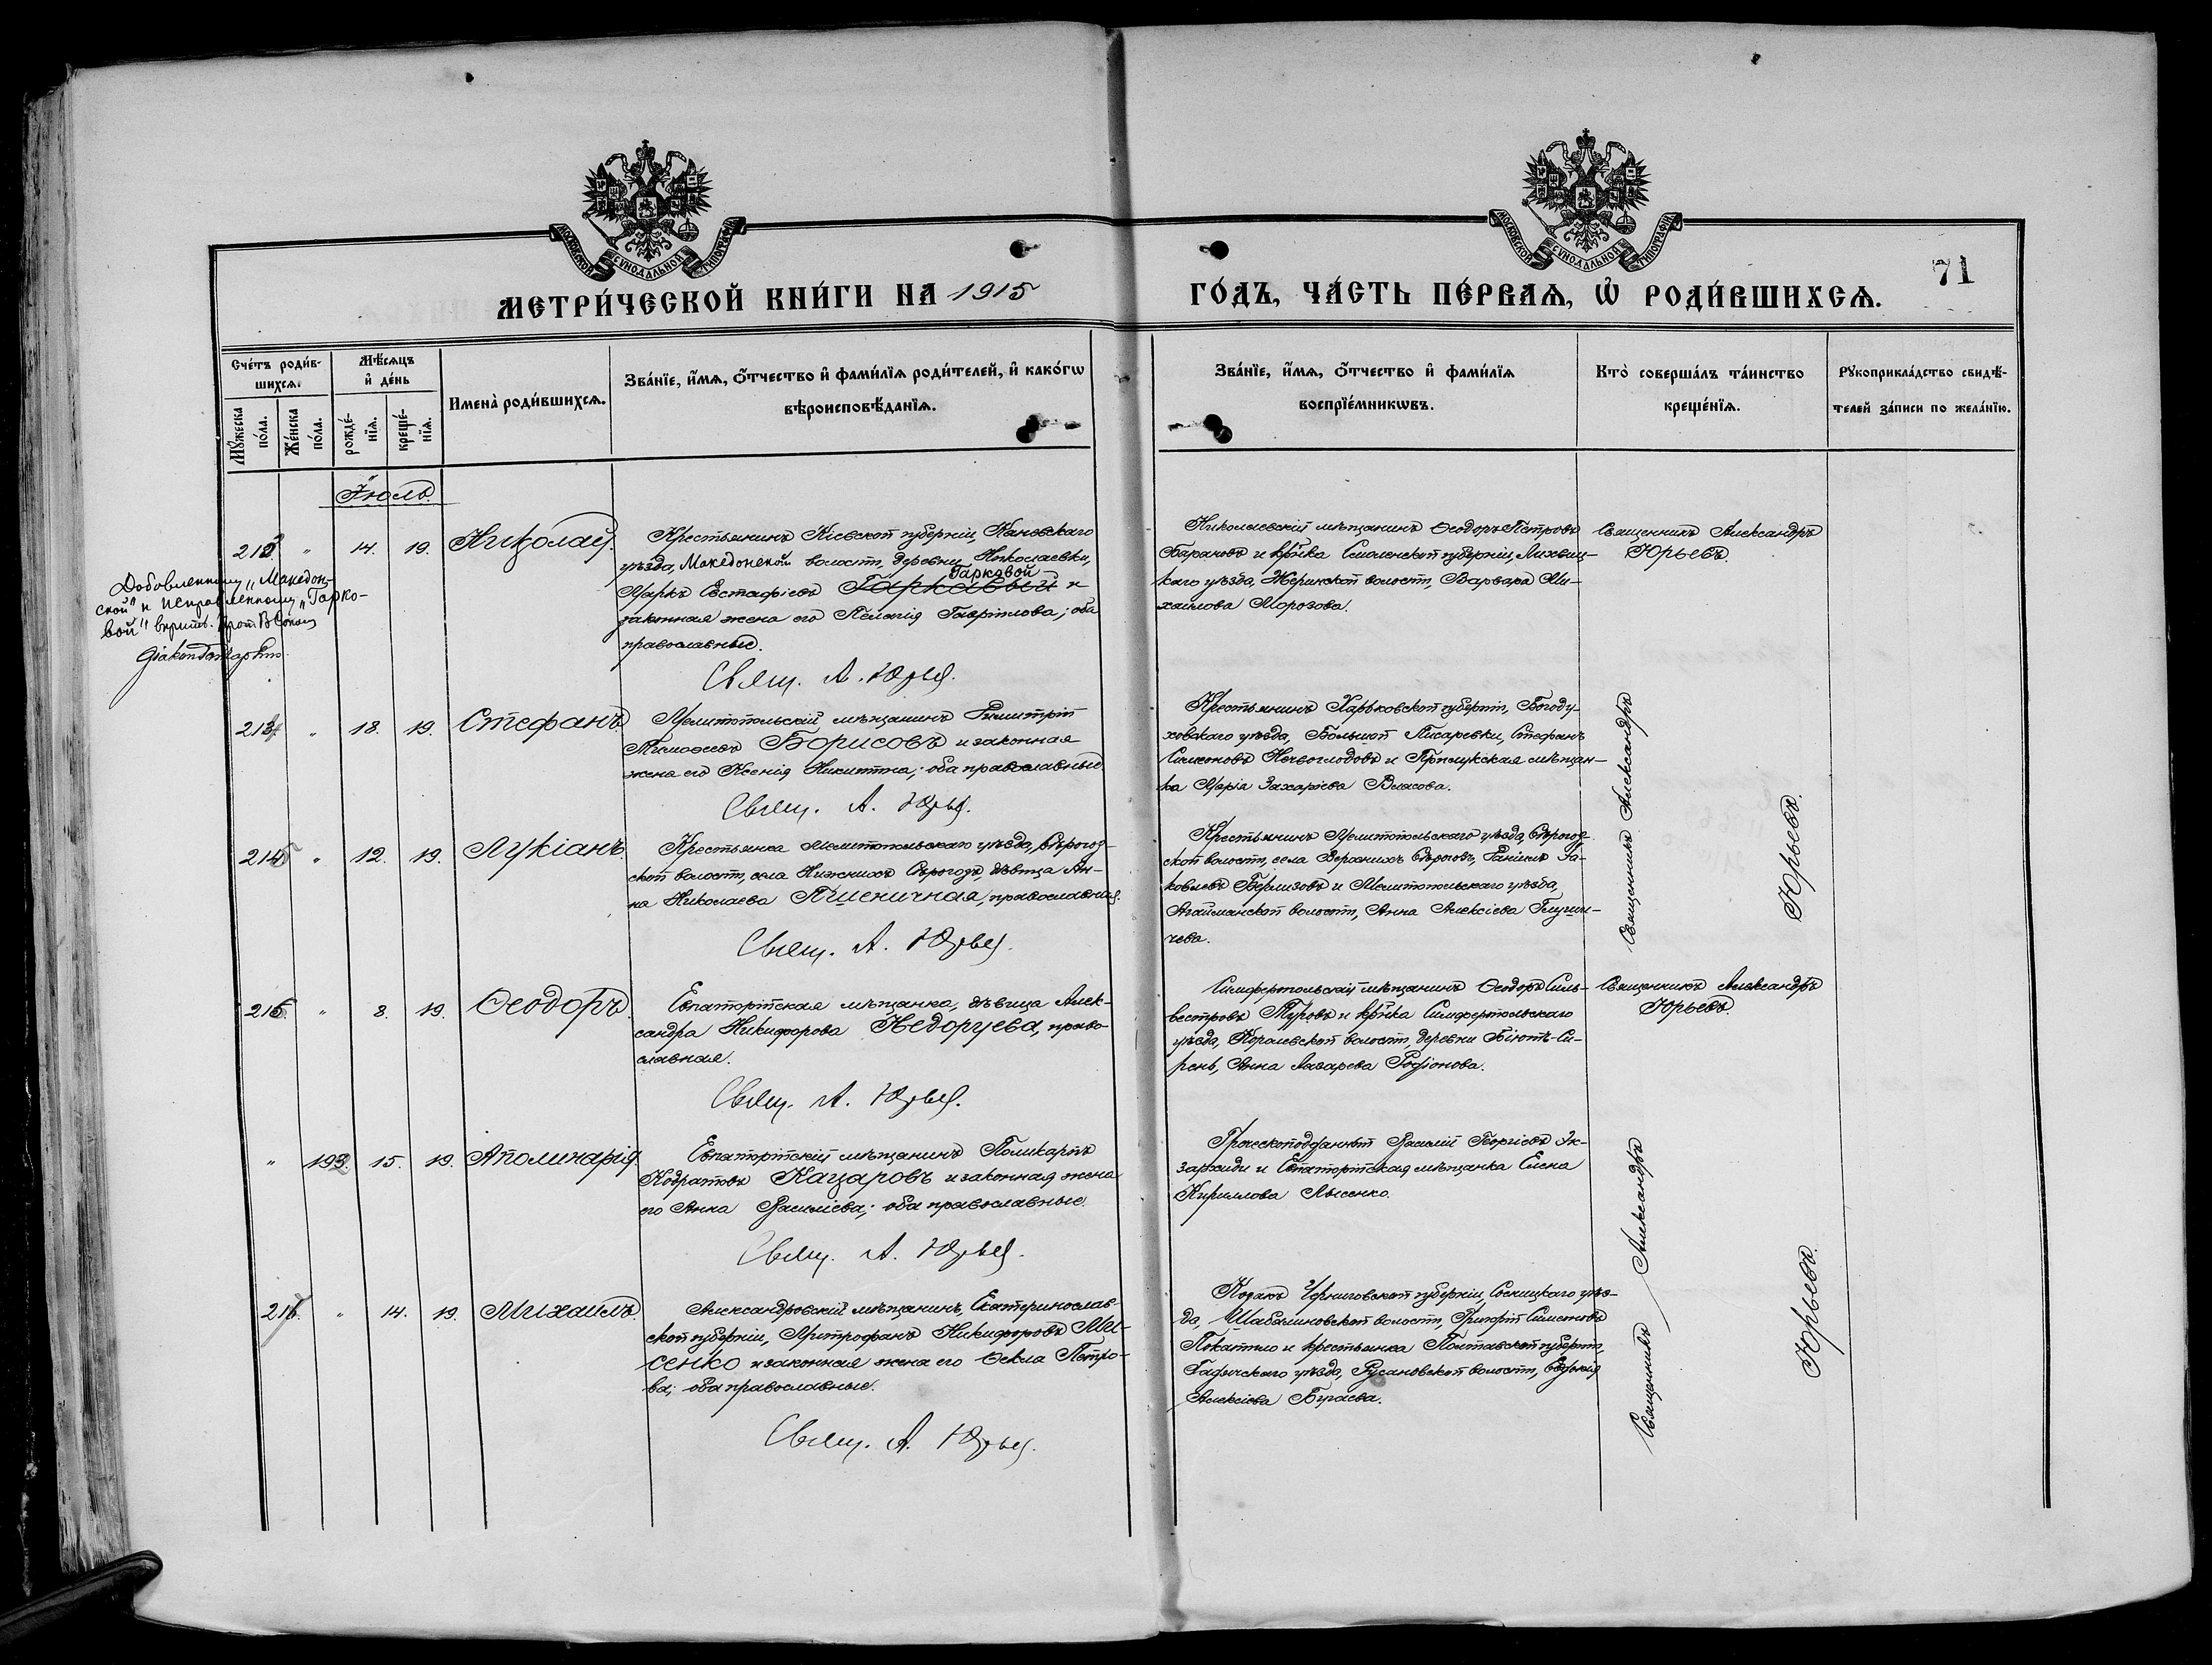 МОСКОВСКОЙ СУНОДАЛЬНОЙ ТИПОГРАФІИ
МОСКОВСКОЙ СУНОДАЛЬНОЙ ТИПОГРАФІИ
71
МЕТРИ́ЧЕСКОЙ КНИ́ГИ НА 1915
ГО́ДЪ, ЧА́СТЬ ПЕ́РВАѦ, Ѡ҆ РОДИ́ВШИХСѦ.
Сче́тъ роди́в-
шихсѧ.
Мѣ́сѧцъ
и҆ де́нь
Мꙋ́жеска
по́ла.
Же́нска
по́ла.
рожде́-
нїѧ.
креще́-
нїѧ.
Имена̀ роди́вшихсѧ.
Зва́нїе, и҆́мѧ, ѻ҆́тчество и҆ фами́лїѧ роди́телей, и҆ како́гѡ
вѣроисповѣ́данїѧ.
Зва́нїе, и҆́мѧ, ѻ҆́тчество и҆ фами́лїѧ
воспрїе́мникѡвъ.
Кто̀ соверша́лъ та́инство
креще́нїѧ.
Рꙋкоприкла́дство свидѣ́-
телей за́писи по жела́нїю.
Іюль.
213 " 14. 19. Николай.
Крестьянинъ Кіевской губерніи, Каневскаго
уѣзда, Македонской волости, деревни Николаевки,
Гарковой
Маркъ Евстафіевъ Гаркавый и
законная жена его Пелагія Гавріилова; оба
православные.
Свящ. А. Юрьев.
Добовленному „Македон-
ской" и исправленному „Гарко-
вой" вѣрить. Прот. В.
Николаевскій мѣщанинъ Ѳеодоръ Петровъ
Барановъ и кр-нка Смоленской губерніи,
каго уѣзда, Жеринской волости, Варвара Ми-
хайлова Морозова.
Священникъ Александръ
Юрьевъ.
214 " 18. 19. Стефанъ.
Мелитопольскій мѣщанинъ Димитрій
Тимоѳеевъ Борисовъ и законная
жена его Ксенія Никитина; оба православные.
Свящ. А. Юрьев.
Крестьянинъ Харьковской губерніи, Богоду-
ховскаго уѣзда, Большой Писаревки, Стефанъ
Симеоновъ и Прилукская мѣщан-
ка Марія Захаріева Власова.
Священникъ Александръ
Юрьевъ.
215 " 12. 19. Лукіанъ.
Крестьянка Мелитопольскаго уѣзда, Сѣрогоз-
ской волости, села Нижнихъ Сѣрогозъ, дѣвица Ан-
на Николаева Пшеничная, православная.
Свящ. А. Юрьев.
Крестьянинъ Мелитопольскаго уѣзда, Сѣрогоз-
ской волости, села Верхнихъ Сѣрогозъ, Даніилъ Іа-
ковлевъ и Мелитопольскаго уѣзда,
Агайманской волости, Анна Алексіева
чева.
216. " 8. 19. Ѳеодоръ.
Евпаторійская мѣщанка, дѣвица Алек-
сандра Никифорова Недоруева, право-
славная.
Свящ. А. Юрьев.
Симферопольскій мѣщанинъ Ѳеодоръ Силь-
вестровъ Туровъ и кр-нка Симферопольскаго
уѣзда, волости, деревни Біютъ-Си-
рень, Анна Лазарева Родіонова.
Священникъ Александръ
Юрьевъ.
" 193. 15. 19. Аполинарія.
Евпаторійскій мѣщанинъ Поликарпъ
Кодратовъ Кацаровъ и законная жена
его Анна Василіева; оба православные.
Свящ. А. Юрьев.
Греческоподданный Василій Георгіевъ Эк-
зархиди и Евпаторійская мѣщанка Елена
Кириллова Лысенко.
Священникъ Александръ
Юрьевъ.
217. " 14. 19. Михаилъ.
Александровскій мѣщанинъ, Екатеринослав-
ской губерніи, Митрофанъ Никифоровъ Мы-
сенко и законная жена его Ѳекла Петро-
ва; оба православные.
Свящ. А. Юрьев.
Козакъ Черниговской губерніи, Сосницкаго уѣз-
да, Шабалиновской волости, Григорій Симеоновъ
Покатило и крестьянка Полтавской губерніи,
Гадячскаго уѣзда, Русановской волости, Евдокія
Алексіева Бугаева.